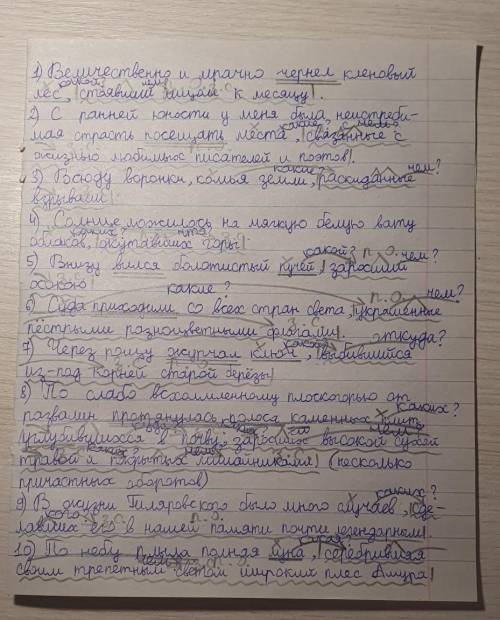 1) Величественно и мрачно чернел кленовый
какой?
лес, стоявший лицом к месяцу.
2) С ранней юности у меня была неистреби-
какие?
мая страсть посещать места, связанные с
жизнью любимых писателей и поэтов.
какие? чем?
3) Всюду воронки, комья земли, раскиданные
взрывами.
4) Солнце ложилось на мягкую белую вату
каких? что?
облаков, окутавших горы.
какой? п.о. чем?
5) Внизу вился болотистый ручей, заросший
осокою.
какие? п.о. чем?
6) Сюда приходили со всех стран света, украшенные
пёстрыми разноцветными флагами.
какой? откуда?
7) Через рощу журчал ключ, выбившийся
из-под корней старой берёзы.
8) По слабо всхолмленному плоскогорью от
каких?
развалин протянулась полоса каменных плит,
углубившихся в почву, заросших высокой сухой
травой и покрытых лишайниками (несколько
причастных оборотов)
каких?
9) В жизни Гиляровского было много случаев, сде-
кого? п.о.
лавших его в нашей памяти почти легендарным.
какая?
10) По небу плыла полная луна, серебрившая
своим трепетным светом широкий плес Амура.